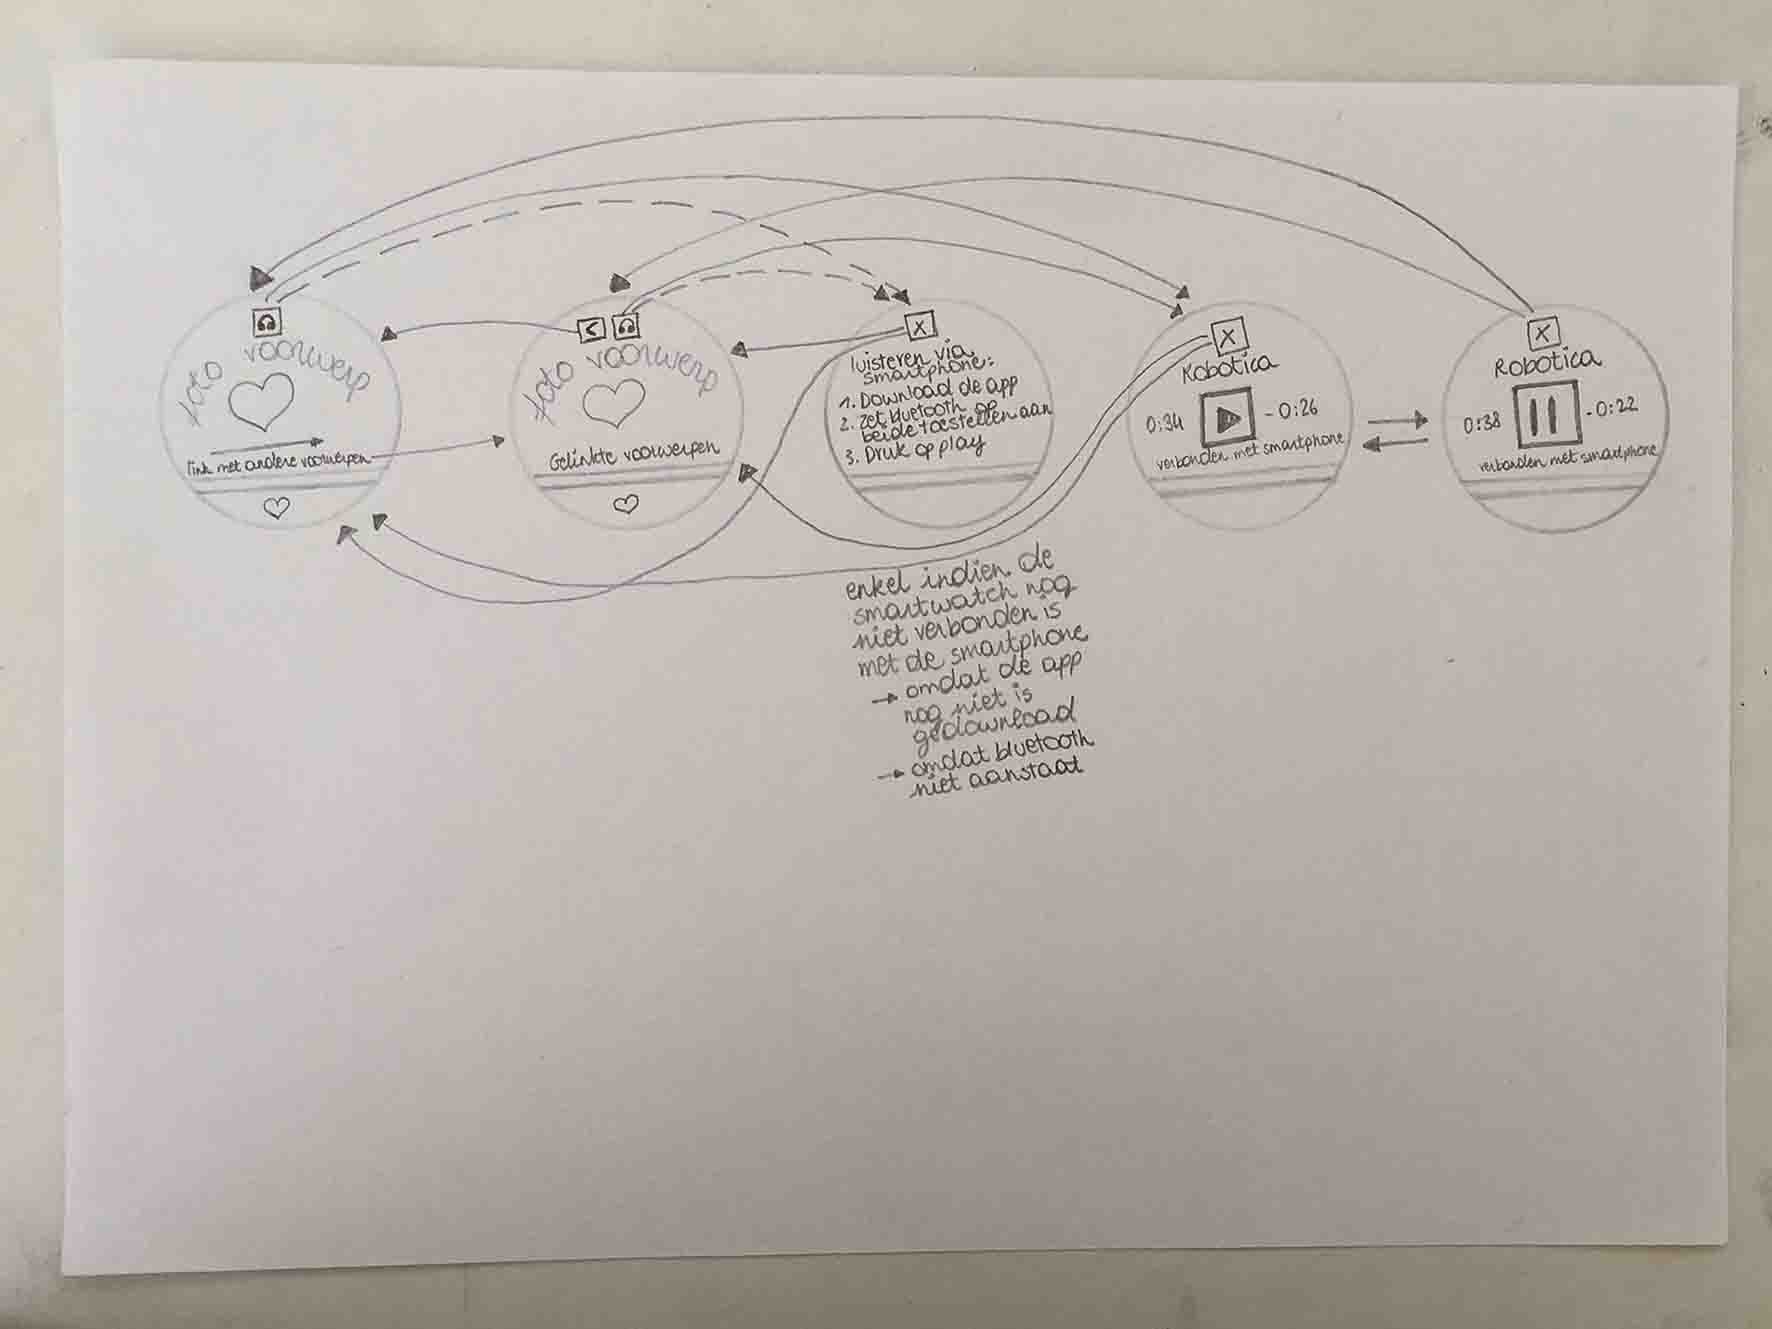 foto voorwerp
link met andere voorwerpen
<
foto voorwerp
Gelinkte voorwerpen
X
luisteren via
smartphone:
1. Download de app
2. Zet bluetooth op
beide toestellen aan
3. Druk op play
X
Robotica
0:34
- 0:26
verbonden met smartphone
X
Robotica
0:38
- 0:22
verbonden met smartphone
enkel indien de
smartwatch nog
niet verbonden is
met de smartphone
→ omdat de app
nog niet is
gedownload
→ omdat bluetooth
niet aanstaat